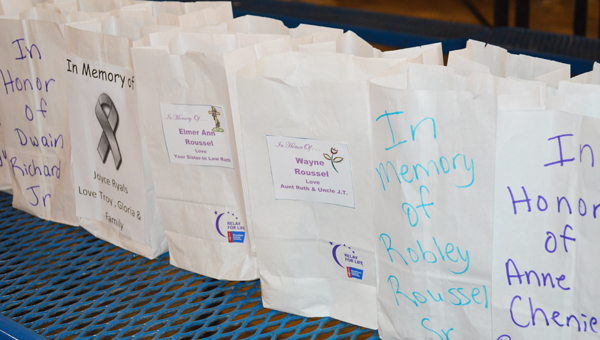 In
Honor
of
Dwain
Richard
Jr
In Memory of
Joyce Ryals
Love Troy, Gloria &
Family
In Memory Of
Elmer Ann
Roussel
Love
Your Sister-in-Law Ruth
RELAY
FOR LIFE
In Honor Of
Wayne
Roussel
Love
Aunt Ruth & Uncle J.T.
RELAY
FOR LIFE
In
Memory
of
Robley
Roussel
Sr
In
Honor
of
Anne
Chenie